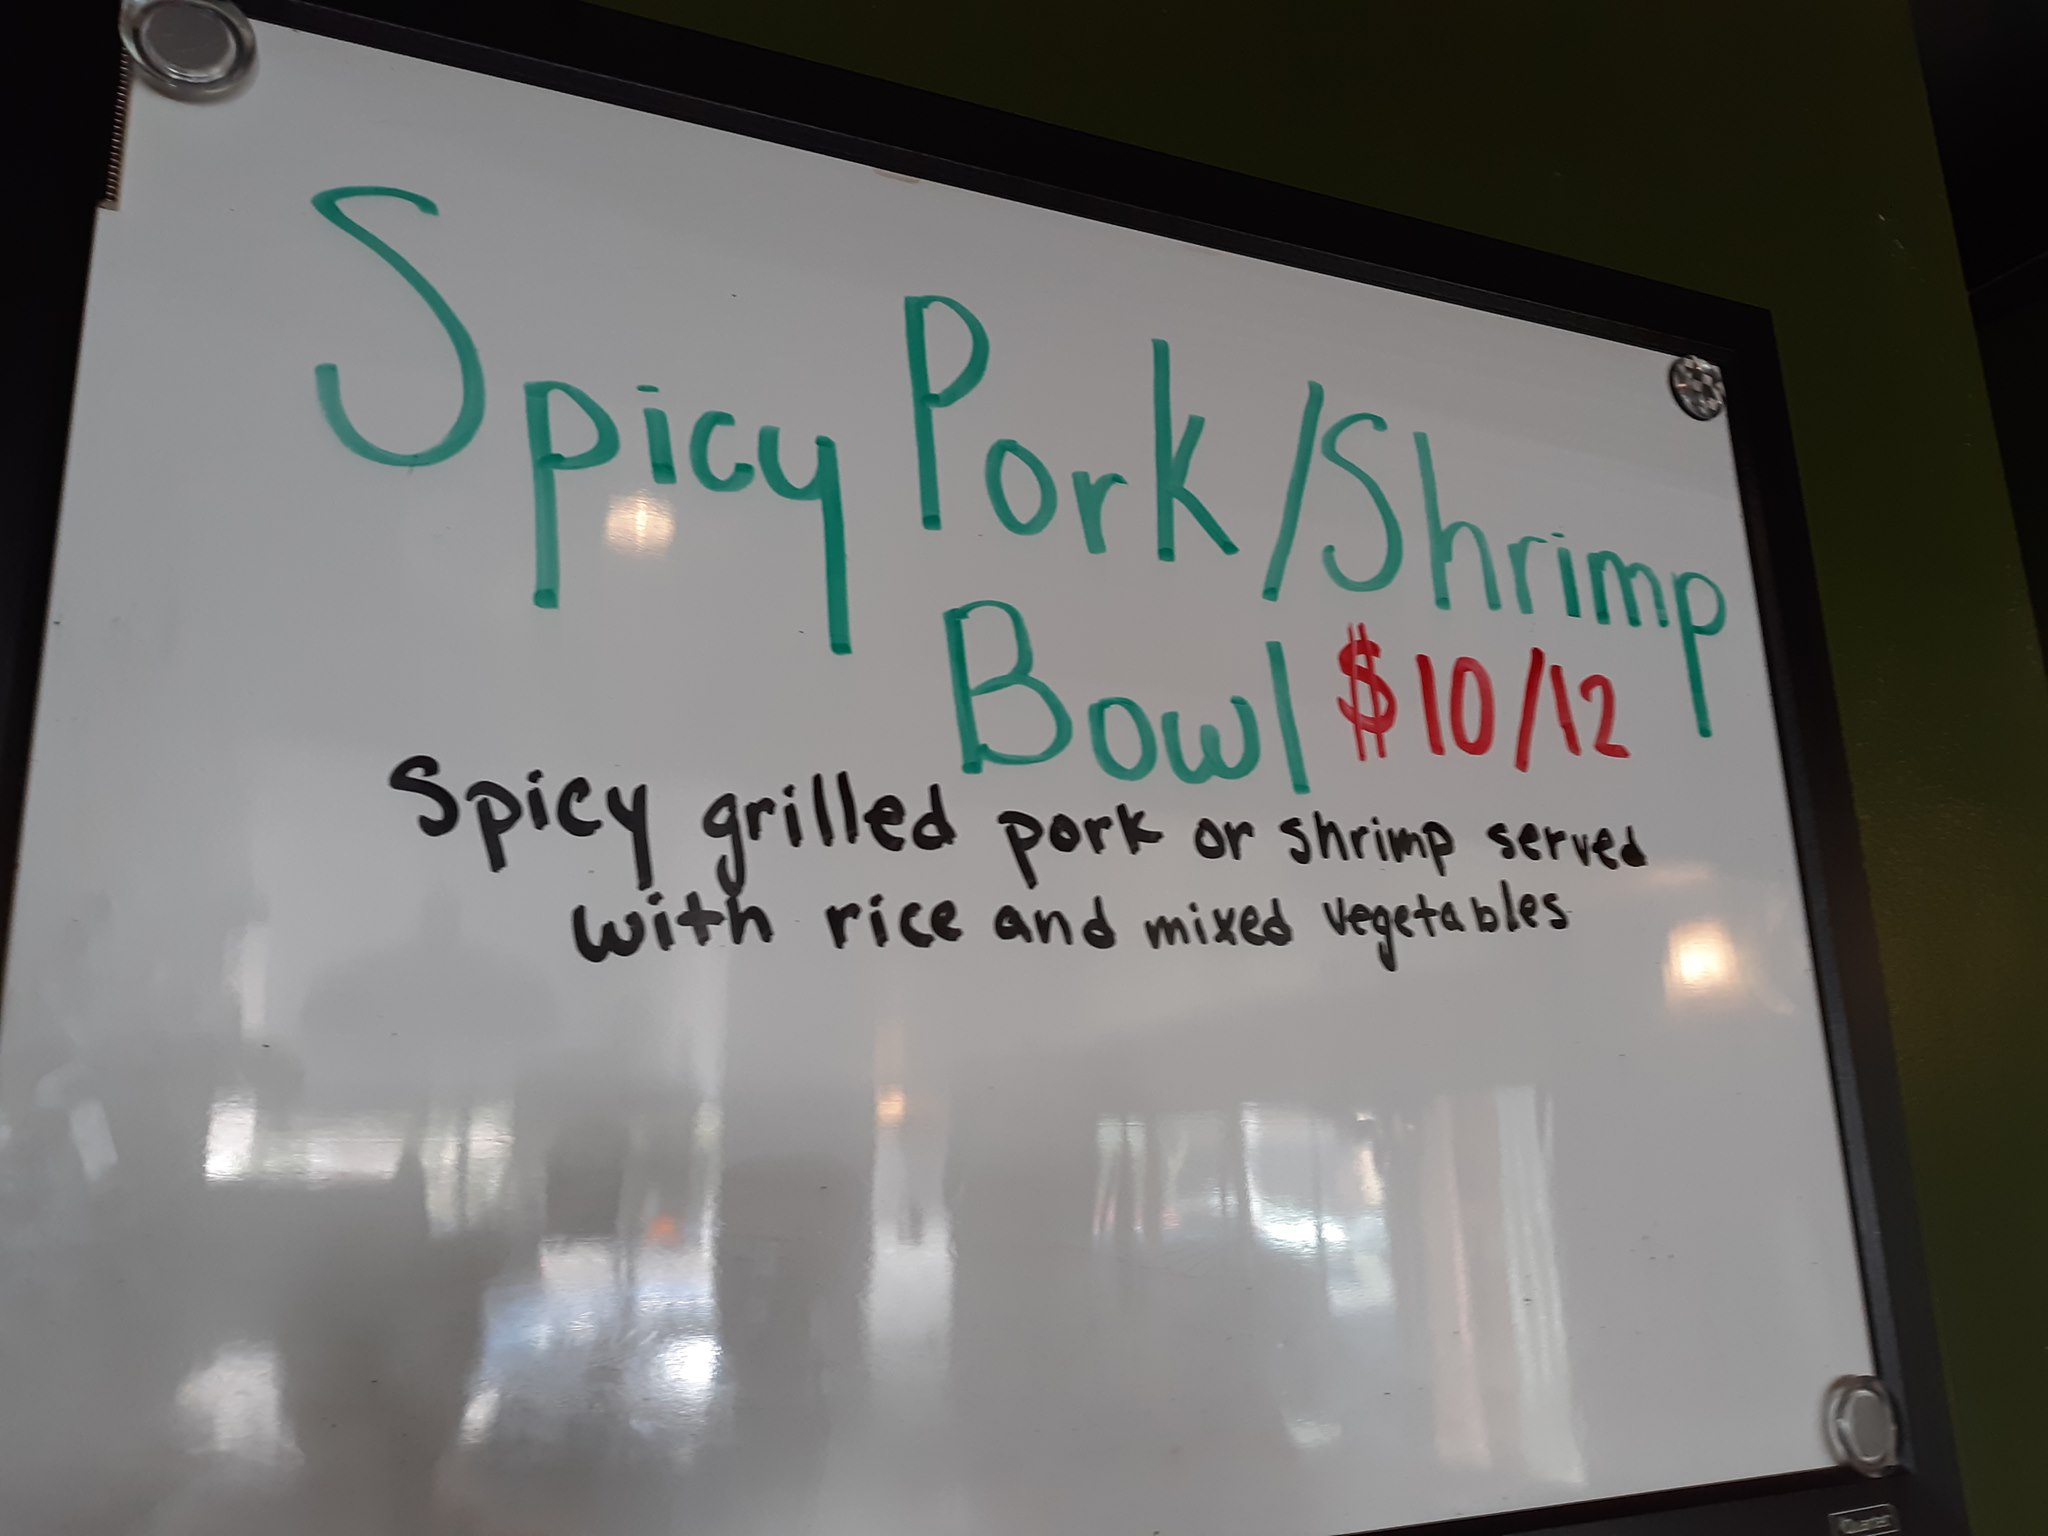 Spicy Pork/Shrimp
Bowl $10/12
Spicy grilled pork or shrimp served
with rice and mixed vegetables
Quartet